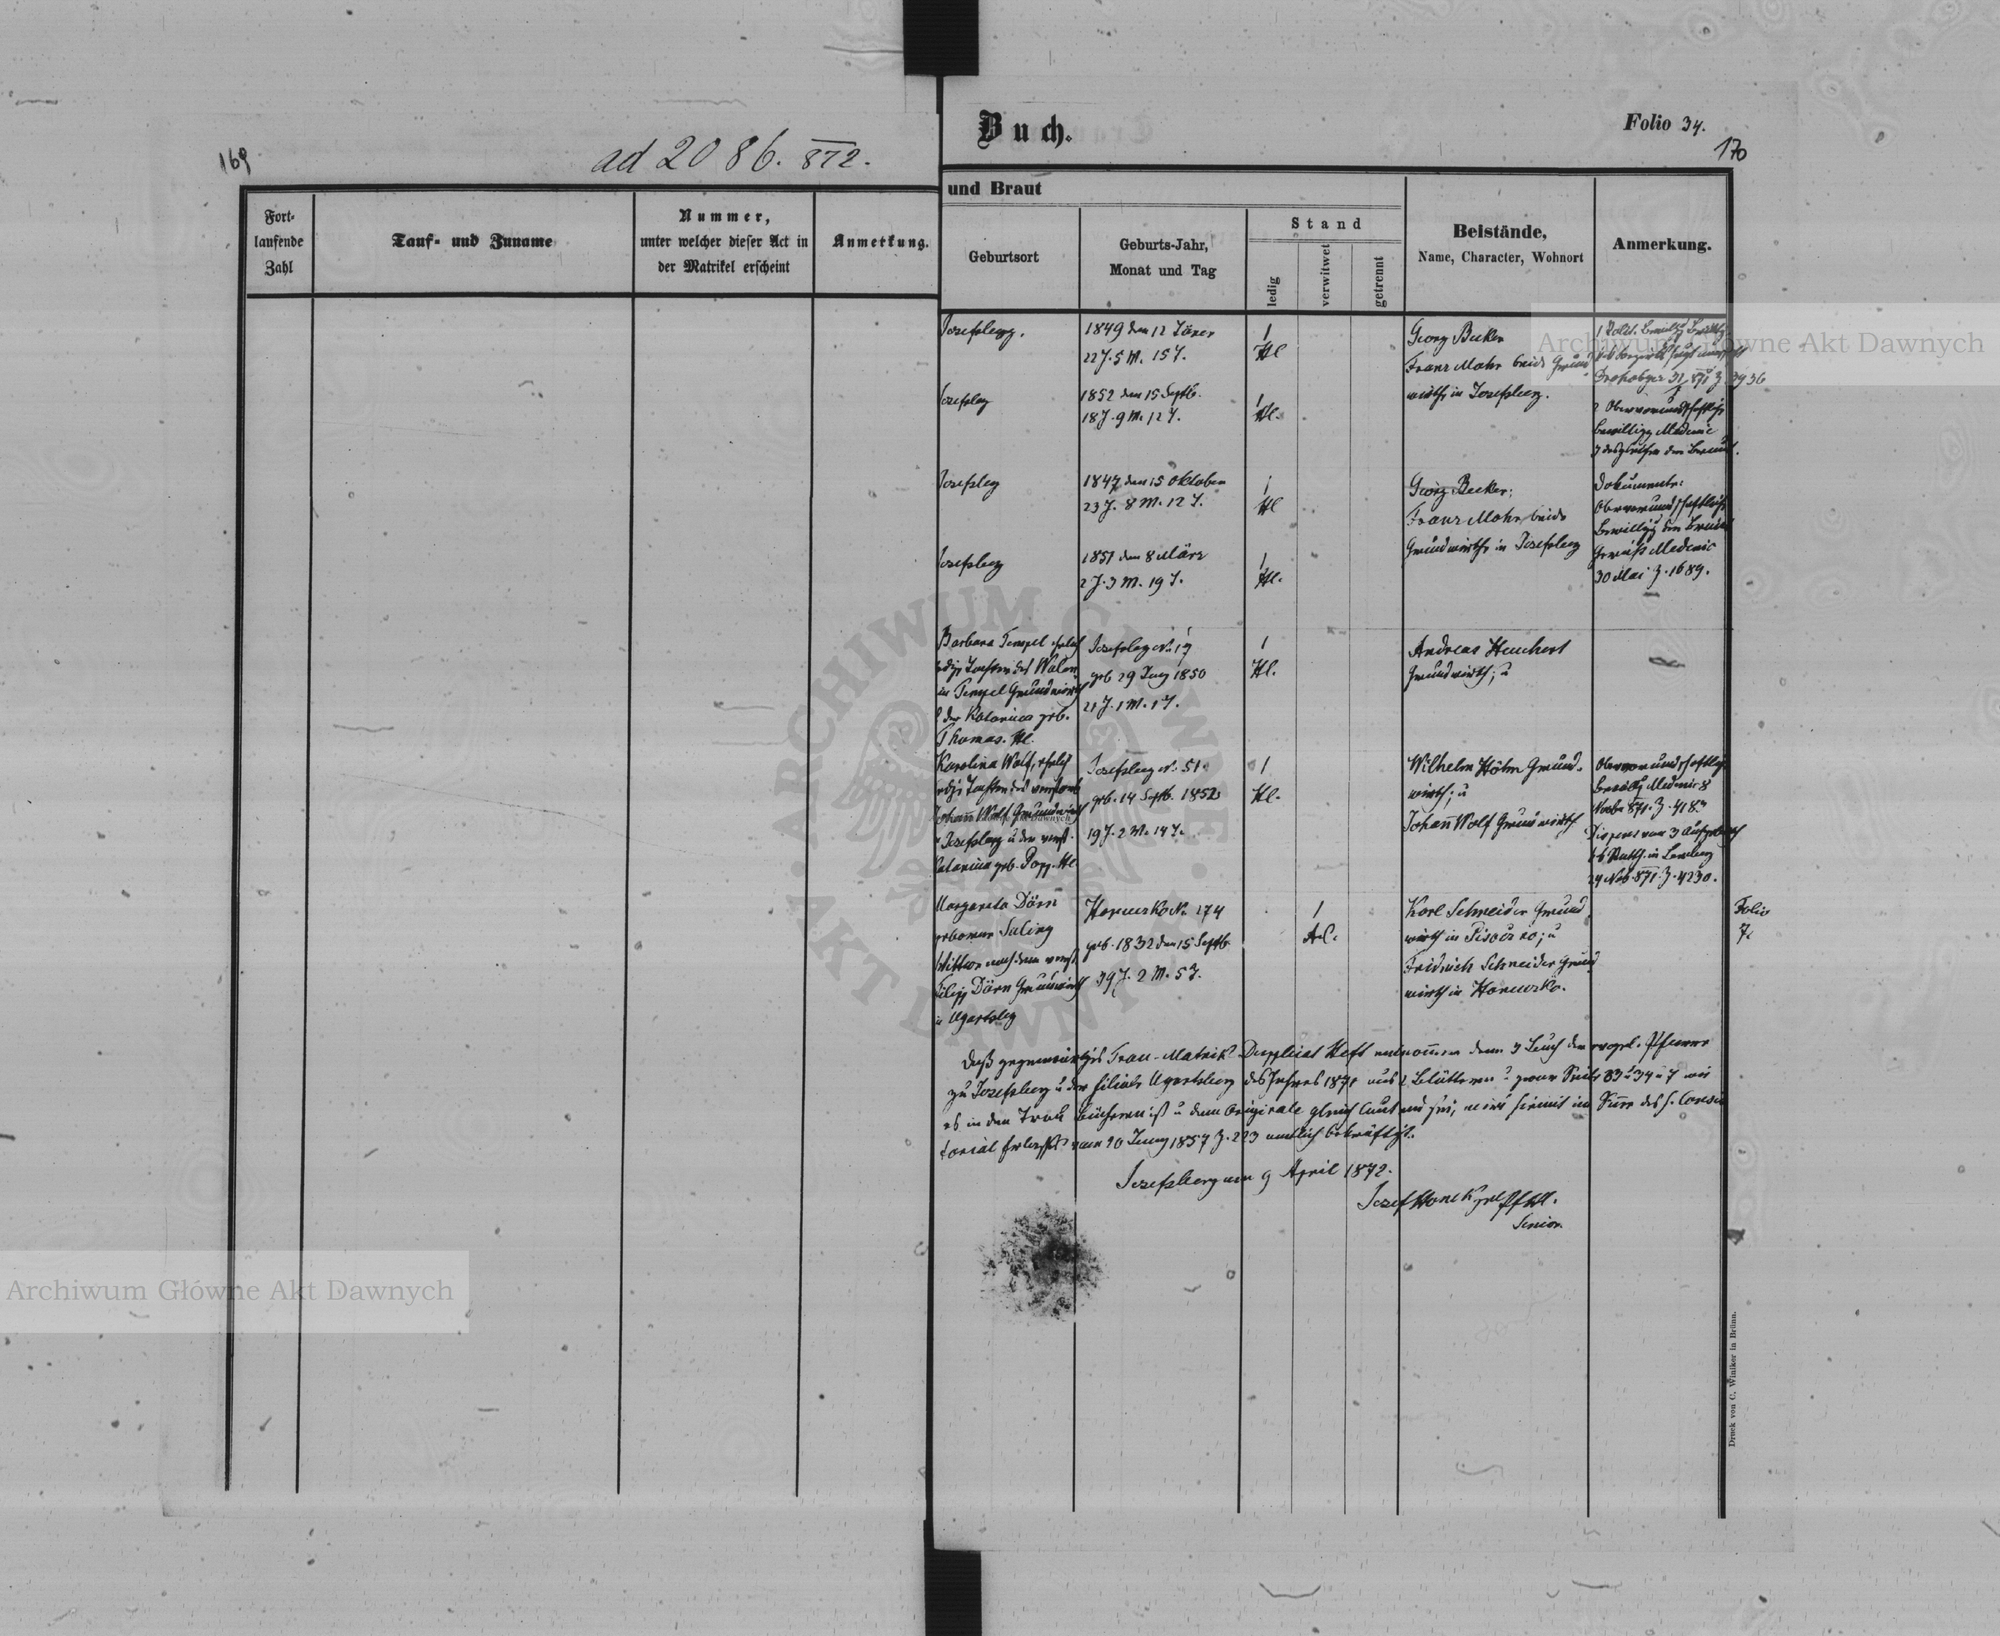 169
ad 2086. 872.
Fort-
laufende
Zahl
Tauf- und Zuname
Nummer,
unter welcher dieser Act in
der Matrikel erscheint
Anmerkung.
Buch.
Folio 34.
170
und Braut
Geburtsort
Geburts-Jahr,
Monat und Tag
Stand
ledig
verwitwet
getrennt
Beistände,
Name, Character, Wohnort
Anmerkung.
Josefsberg.
1849 den 12 Jäner
22 J. 5 M. 15 T.
1
Hl
Georg Becker
Franz Mohr beide Grund
wirthe in Josefsberg.
Josefsberg
1852 den 15 Septb.
18 J. 9 M. 12 T.
1
Hl.
2 Obervormundschaftliche
Bewilligg Medenic
Josefsberg
1847 den 15 Oktober
23 J. 8 M. 12 T.
1
Hl
Georg Becker;
Franz Mohr beide
Grundwirthe in Josefsberg
Dokumente:
Obervormundschaftliche
Bewilligg der Braut
Medenic
30 Mai Z. 1689.
Josefsberg
1851 den 8 März
2 J. 3 M. 19 T.
1
Hl.
Barbara Tempel ehelich
ledige Tochter des Walen
in Tempel Grundwirth
der Katarina geb.
Thomas. Hl.
Josefsberg N. 17
geb 29 Juny 1850
21 J. 1 M. 1 T.
1
Hl.
Andreas Heuchert
Grundwirth; u
Karolina Wolf, ehelich
ledige Tochter des verstorb
Johann Wolf Grundwirth
Josefsberg u der verst.
Catarina geb. Popp. Hl
Josefsberg N. 51
geb. 14 Septb. 1852
19 J. 2 M. 14 T.
1
Hl.
Wilhelm Höhn Grund-
wirth; u
Johann Wolf Grundwirth
Obervormundschaftlige
Bewillg Medenic 8
Novbr 871. Z. 418
Dispens vom 3 Aufgeboth
Statth. in Lemberg
24 Nob. 871. Z. 4230.
Margareta Dörn
geborene Saling
Wittwe nach dem verst
Filipp Dörn Grundwirth
in Ugartsberg
Horucko N. 174
geb. 1832 den 15 Septb
39 J. 2 M. 5 T.
1
Karl Schneider Grund
wirth in; u
Fridrich Schneider Grund
wirth in Horucko.
Folio
7.
Daß gegenwärtiges Trau-Matrik Duplicat Heft entnommen dem 3 Buch der evangel. Pfarre
zu Josefsberg u der Filiale Ugartsberg des Jahres 1871 aus 2 Blättern u zwar Seite 33 u 34 u 7 wie
es in den Trau Büchern ist u dem Originale gleich lautend sei, wird hiemit im Sinne des h. Consis
torial Erlasses vom 20 Juny 1857 Z. 223 amtlich bekräftigt.
Josefsberg am 9 April 1872.
Senior.
Druck von C. Winiker in Brünn.
Archiwum Główne Akt Dawnych
Archiwum Główne Akt Dawnych
ARCHIWUM GŁÓWNE AKT DAWNYCH